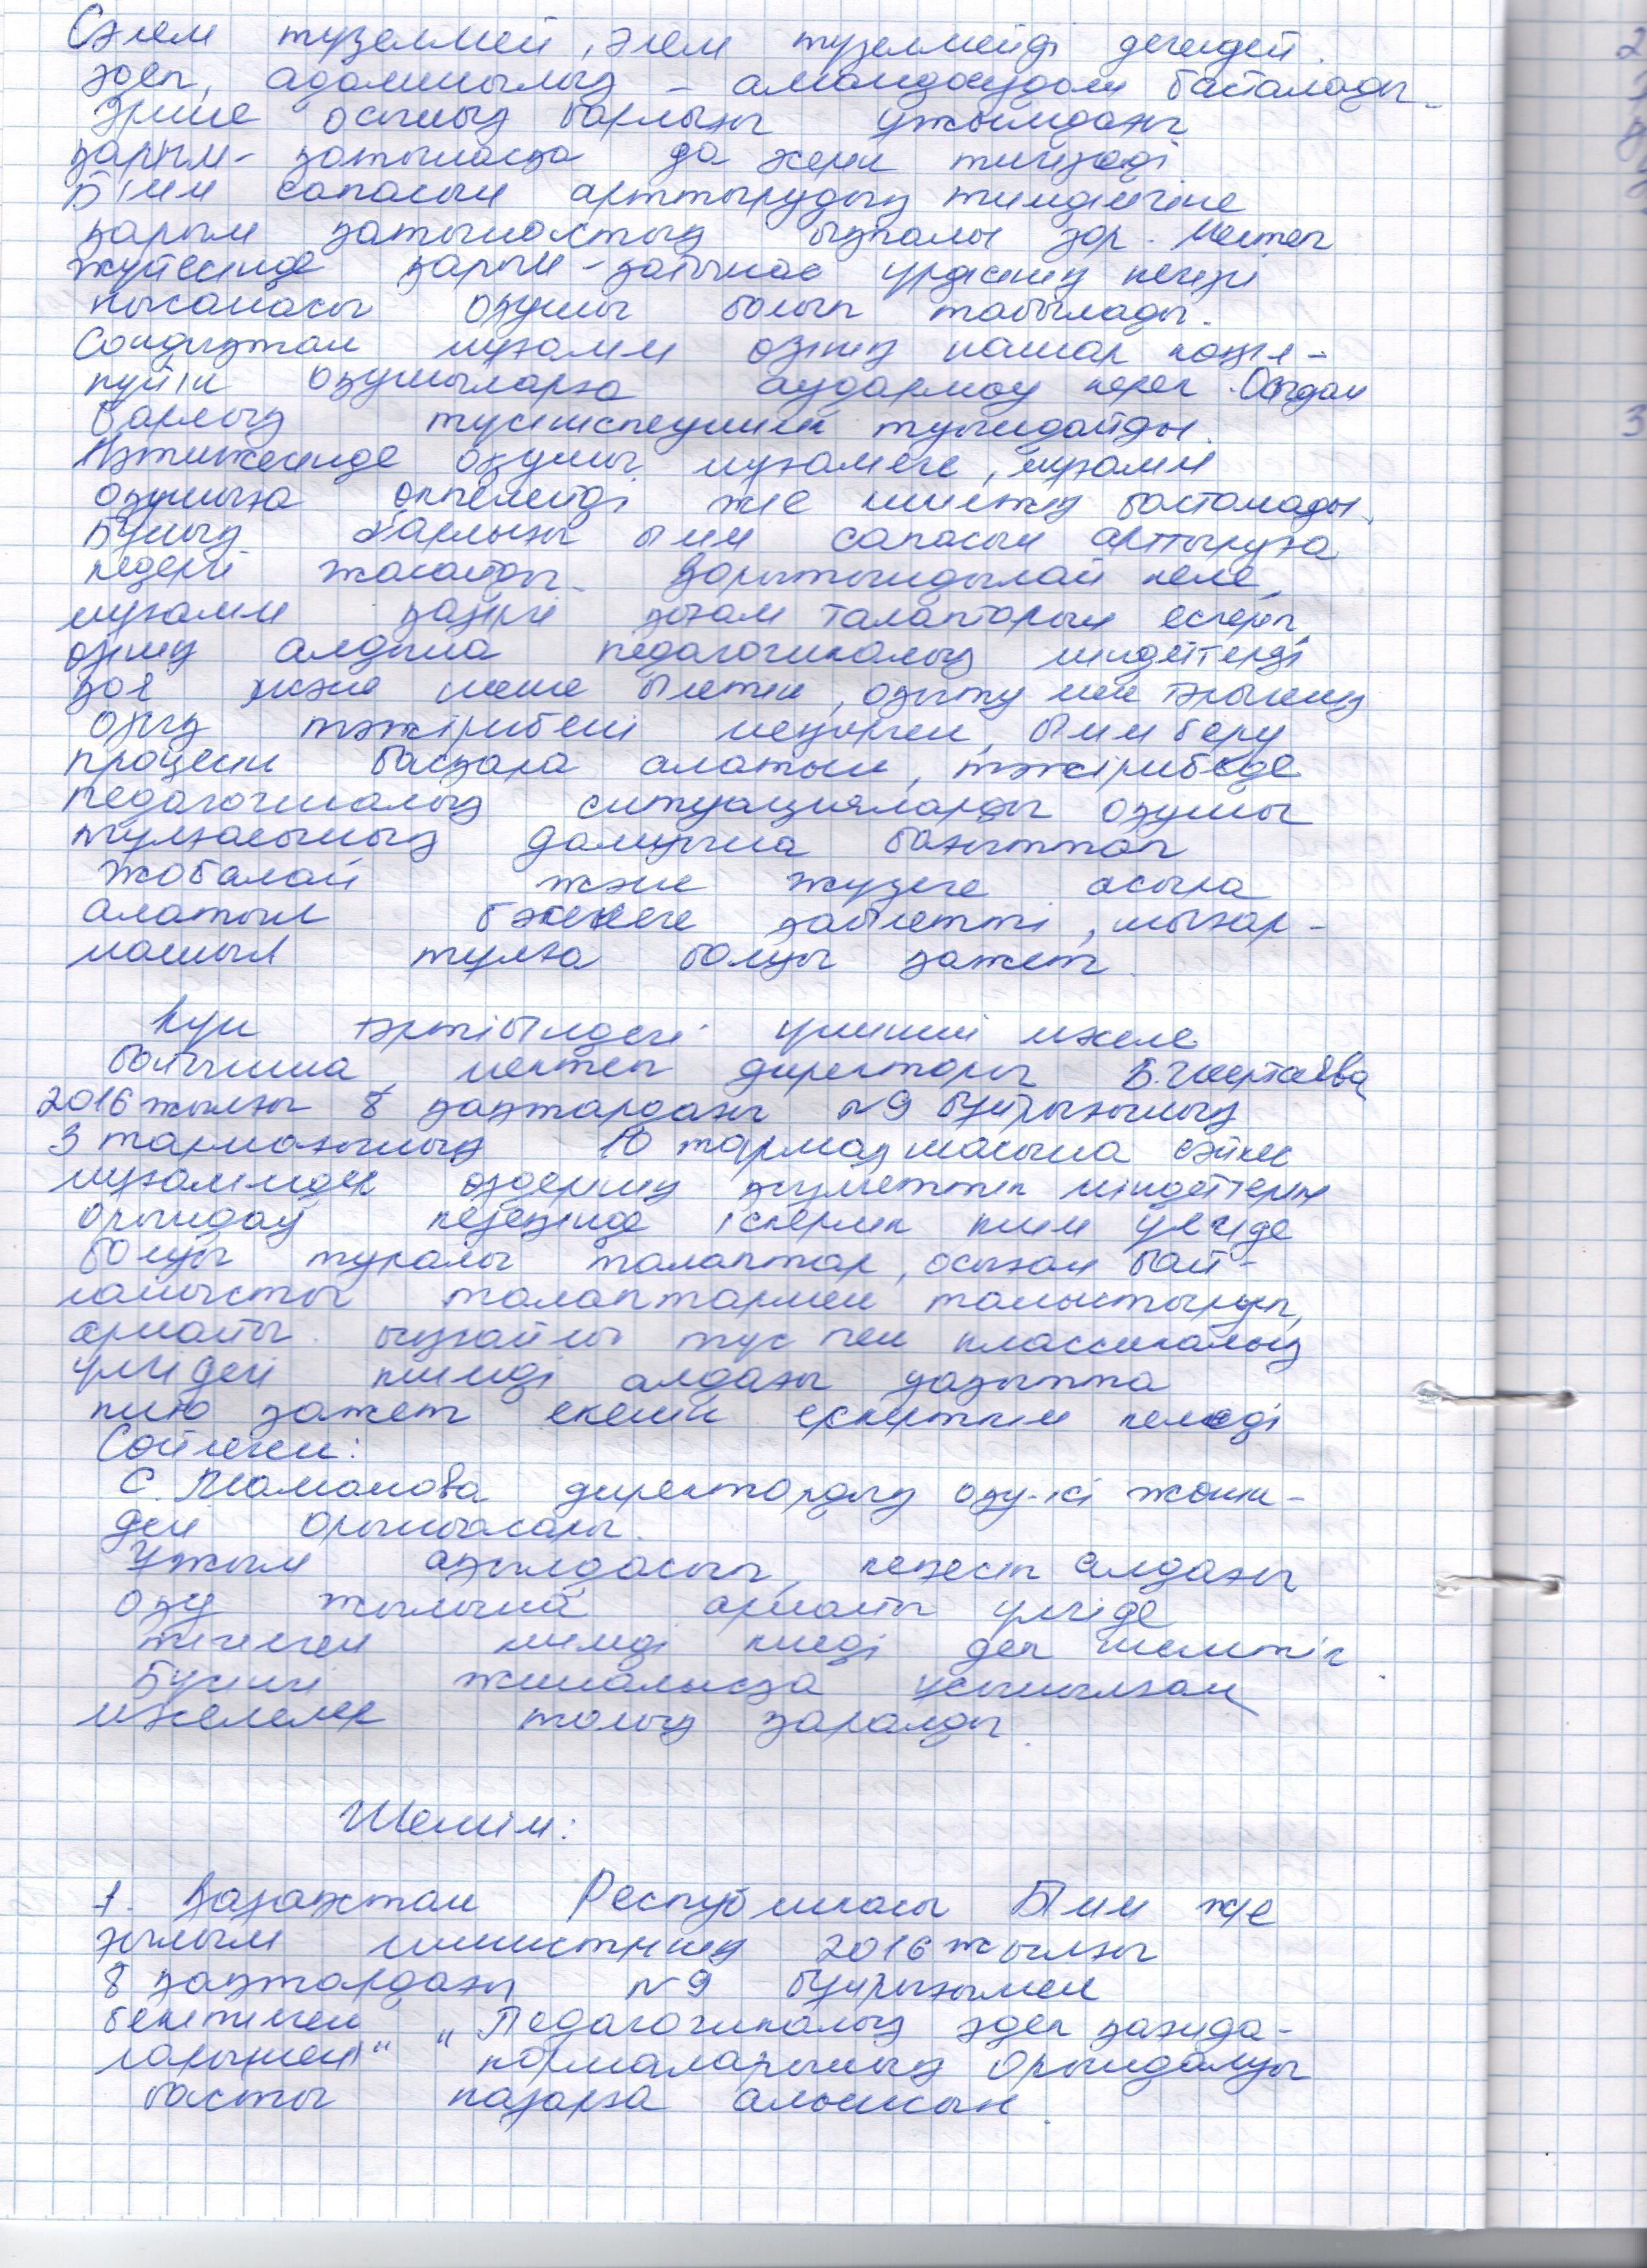 Сәлем түзелмей, әлем түзелмейді дегендей
әдеп, адамшылық - амандасудан басталады.
Әрине осының барлығы ұжымдағы
қарым-қатынасқа да әсерін тигізеді
Білім сапасын арттырудың тиімділігіне
қарым қатынастың ықпалы зор. Мектеп
жүйесінде қарым-қатынас үрдісінің негізгі
нысанасы оқушы болып табылады.
Сондықтан мұғалім өзінің нашар көңіл-
күйін оқушыларға аудармау керек. Осыдан
барлық түсініспеушілік туындайды.
Нәтижесінде оқушы мұғалімге, мұғалім
оқушыға өкпелейді және
Бұның барлығы білім сапасын арттыруға
кедергі жасайды. Қорытындылай келе,
мұғалім қазіргі қоғам талаптарын ескеріп,
өзінің алдына педагогикалық міндеттерді
қоя және шеше білетін, оқыту мен тәрбиенің
озық тәжірибені меңгерген, білім беру
процесін басқара алатын, тәжірибеде
педагогикалық ситуацияларды оқушы
тұлғасының дамуына бағыттап
жобалай және жүзеге асыра
алатын бәсекеге қабілетті, шығар-
машыл тұлға болуы қажет.
Күн тәртібіндегі үшінші мәселе
бойынша мектеп директоры Б.
2016 жылғы 8 қаңтардағы №9 бұйрығының
3 тармағының 10 тармақшасына сәйкес
мұғалімдер өздерінің қызметтік міндеттерін
орындау кезеңінде іскерлік киім үлгіде
болуы туралы талаптар, осыған бай-
ланысты талаптармен таныстырып,
арнайы ыңғайлы түс пен классикалық
үлгідегі киімді алдағы уақытта
кию қажет екенін ескерткім келеді
Сөйлеген:
С. Аманова директордың оқу-ісі жөнін-
дегі орынбасары.
Ұжым ақылдасып, кеңесіп алдағы
оқу жылына арнайы үлгіде
тігілген киімді киеді деп шештік.
Бүгінгі жиналысқа ұсынылған
мәселелер толық қаралды.
Шешім:
1. Қазақстан Республикасы Білім және
ғылым министрінің 2016 жылғы
8 қаңтардағы №9 бұйрығымен
бекітілген "Педагогикалық әдеп қағида-
ларының" нормаларының орындалуы
басты назарға алынсын.